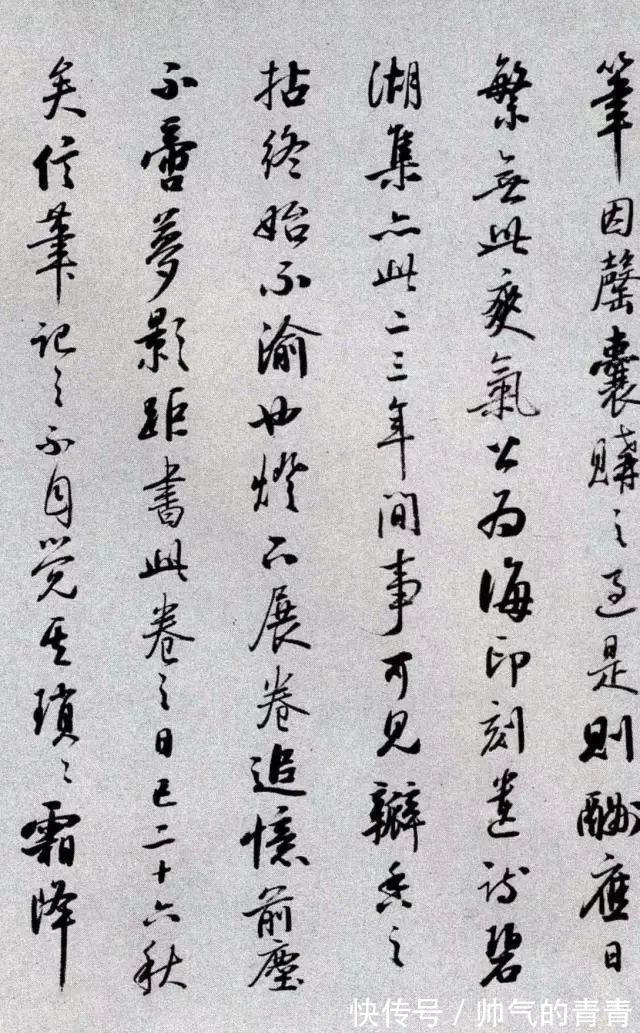 筆因罄囊購之過是則酬應日
繁無此爽氣公為海印刻遺詩碧
湖集亦此二三年間事可見瓣香之
拈終始不渝也燈下展卷追憶前塵
不啻夢影距書此卷之日已二十六秋
矣信筆記之不自覺其瑣〻霜降
快传号/帅气的青青